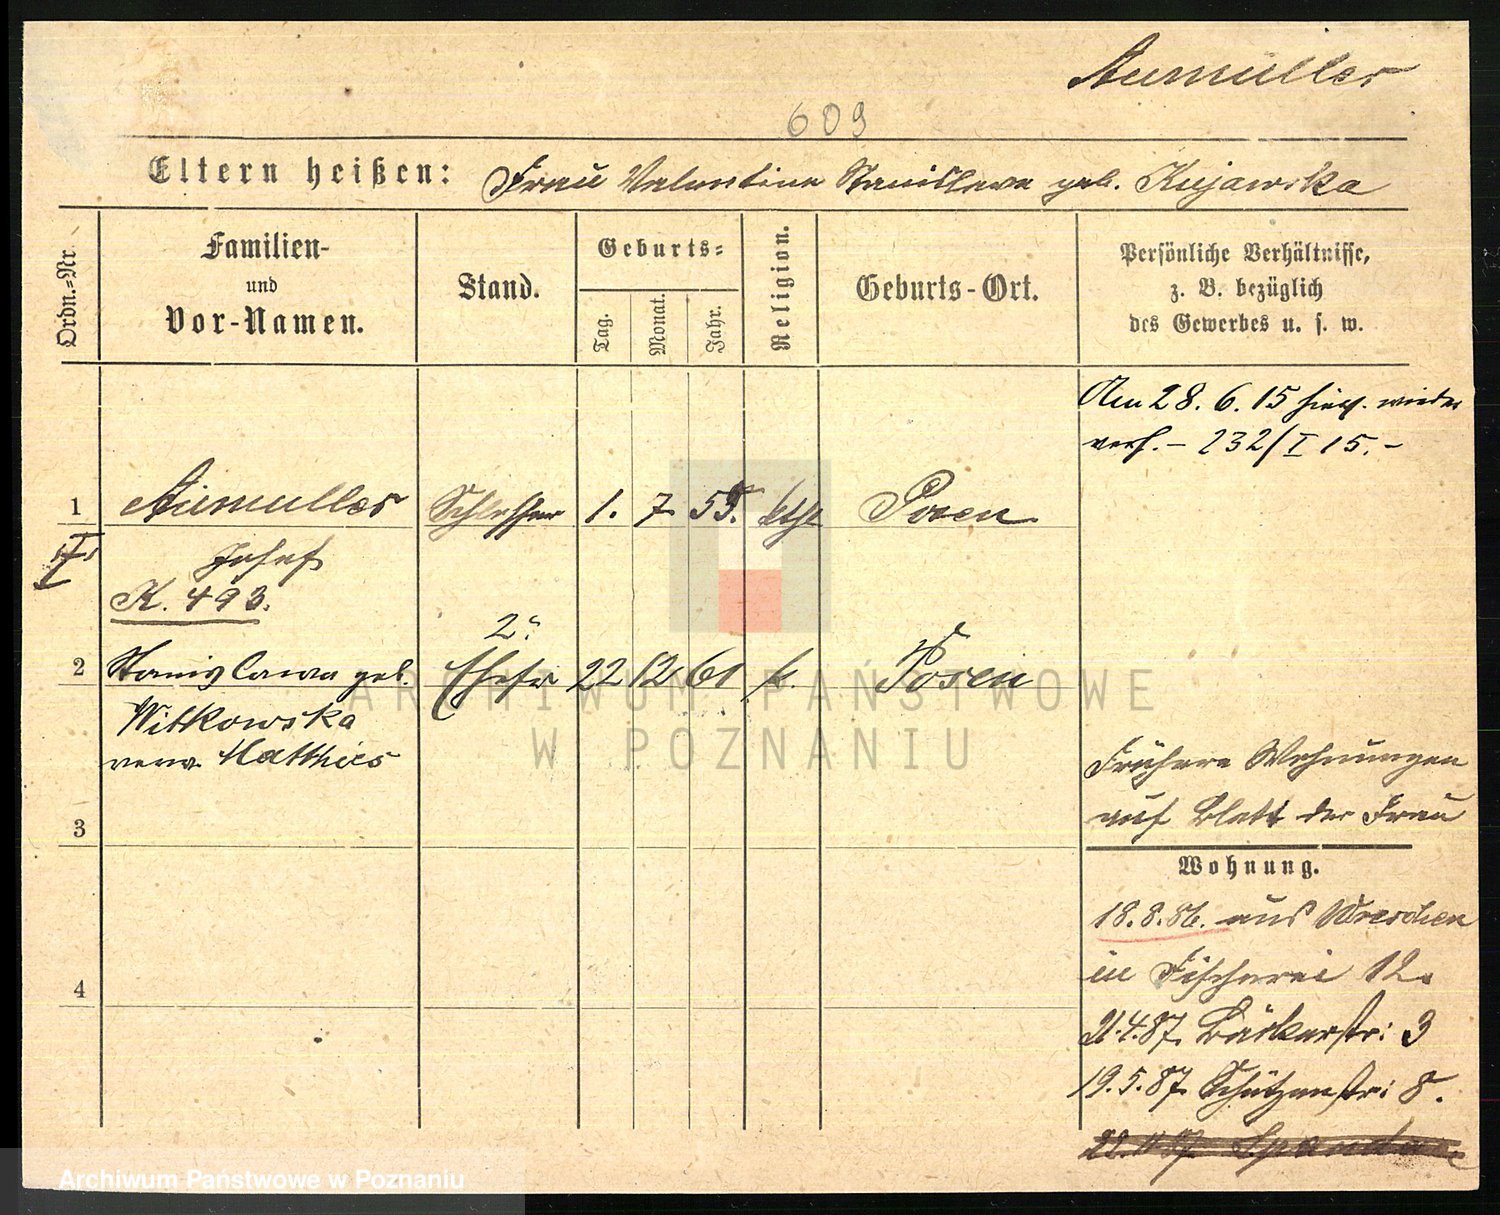 Aumüller
609
Eltern heißen: Frau Valentine Stanislawa geb. Kujawska
Ordn.-Nr.
Familien-
und
Vor-Namen.
Stand.
Geburts-
Tag.
Monat.
Jahr.
Religion.
Geburts-Ort.
Persönliche Verhältnisse,
z. B. bezüglich
des Gewerbes u. s. w.
Am 28. 6. 15 hier wieder
verh. - 232/I 15. -
1 Aumuller Schlosser 1. 7. 55. kthl Posen
Josef
K. 493.
2.
2 Stanislawa geb. Ehefr 22 12 61 k. Posen
Witkowska
verw. Matthies
ARCHIWUM PAŃSTWOWE
W POZNANIU
Frühere Wohnungen
auf Blatt der Frau
3
Wohnung.
18.8.86. aus Wreschen
in Fischerei 12.
4
21.4.87. Bäckerstr: 3
19.5.87. Schützenstr: 8.
Spandau
Archiwum Państwowe w Poznaniu